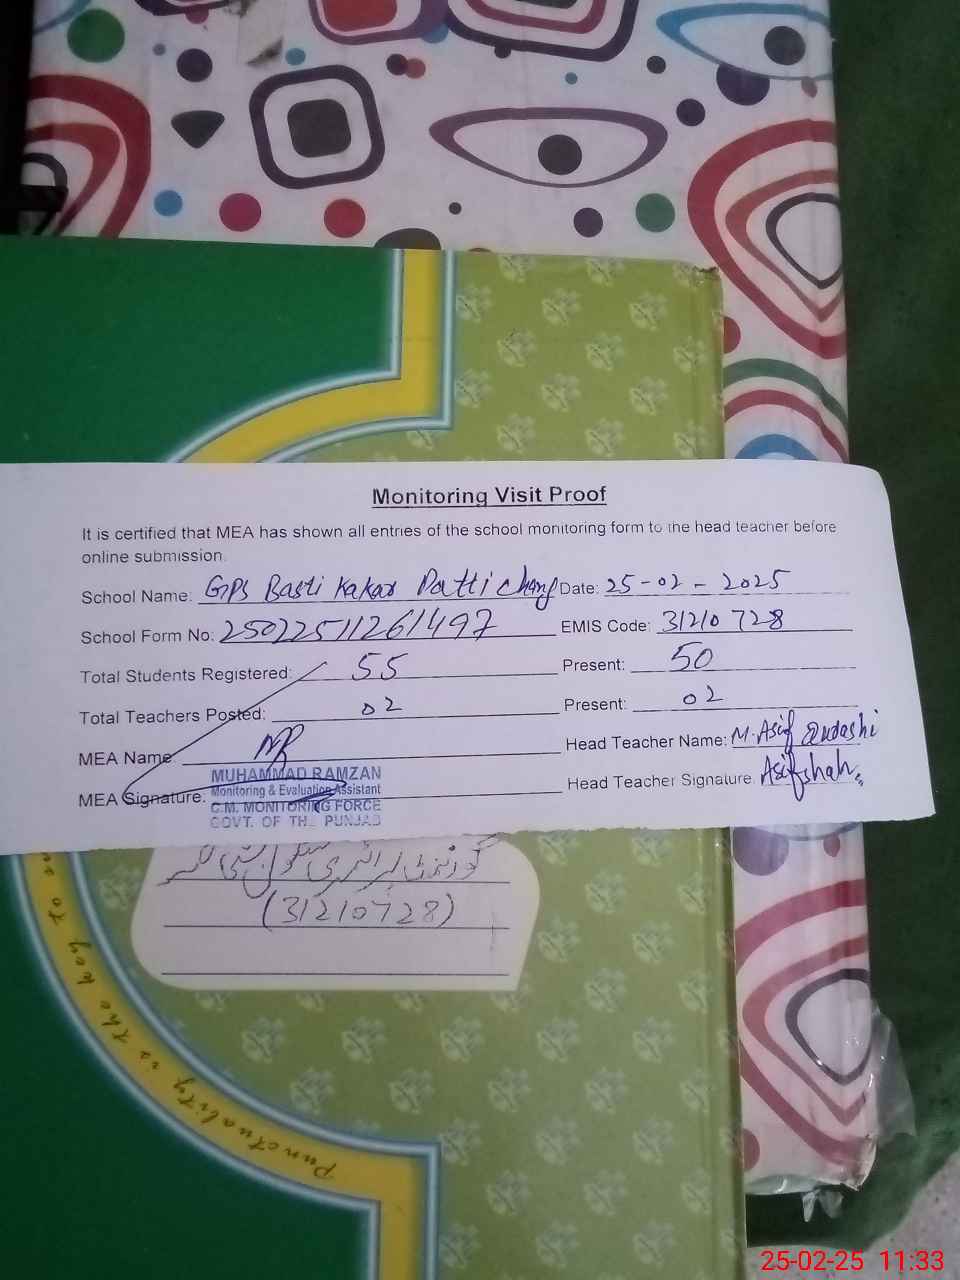 Monitoring Visit Proof
It is certified that MEA has shown all entries of the school monitoring form to the head teacher before
online submission.
School Name: GPS Basti Kakar Patti Date: 25-02-2025
School Form No: 25022511261497 EMIS Code: 31210728
Total Students Registered: 55 Present: 50
Total Teachers Posted: 02 Present: 02
MEA Name: Head Teacher Name: M. Asif
MEA Signature: Head Teacher Signature. Asifshah
MUHAMMAD RAMZAN
Monitoring & Evaluation Assistant
C.M. MONITORING FORCE
GOVT. OF THE PUNJAB
گورنمنٹ پرائمری سکول بستی ککر
(31210728)
Punctuality is the key to
25-02-25 11:33